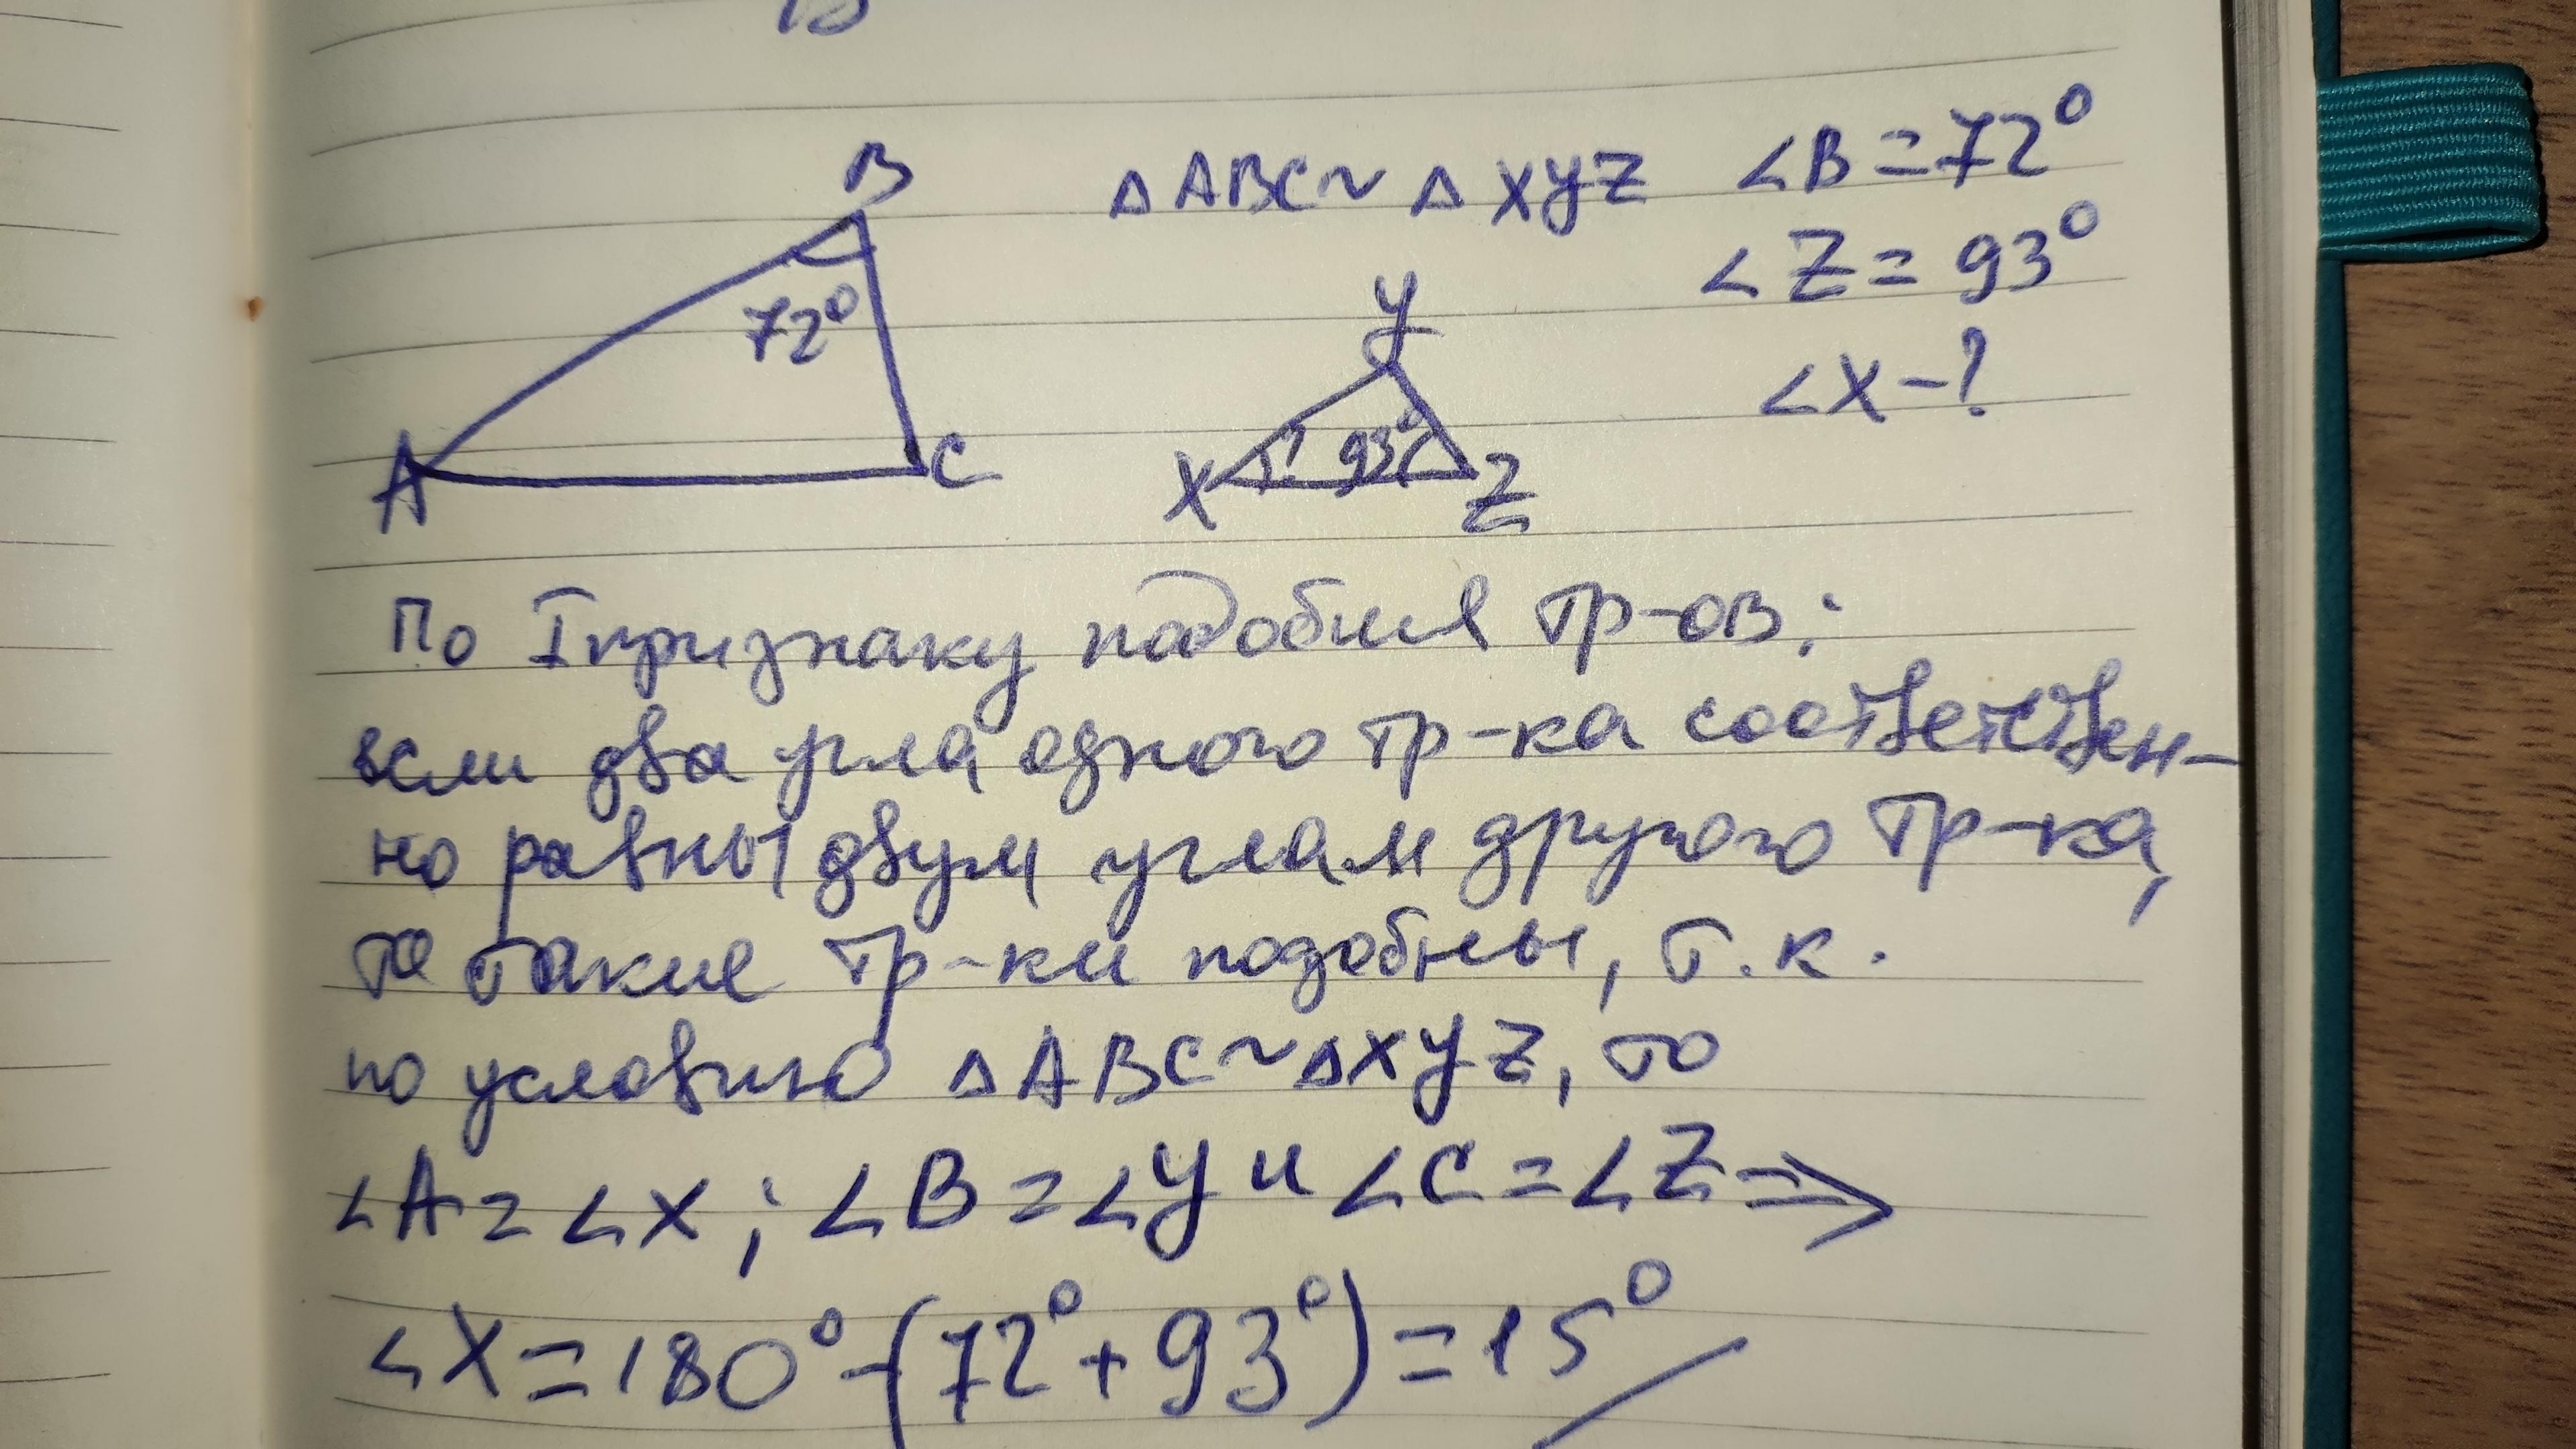 B
△ABC~△XYZ ∠B=72°
∠Z=93°
∠X-?
B
72°
A
C
Y
? 93°
X
Z
По I признаку подобия тр-ов:
если два угла одного тр-ка соответствен-
но равны двум углам другого тр-ка,
то такие тр-ки подобны, т.к.
по условию △ABC~△XYZ, то
∠A=∠X; ∠B=∠Y и ∠C=∠Z⇒
∠X=180°-(72°+93°)=15°